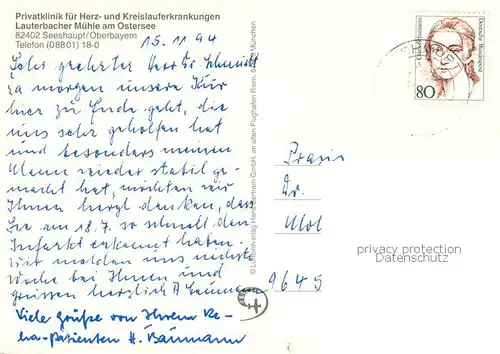 Privatklinik für Herz- und Kreislauferkrankungen
Lauterbacher Mühle am Ostersee
82402 Seeshaupt/Oberbayern
Telefon (08801) 18-0
15.11.94
Sehr geehrter Herr Dr. Schmidt
Da morgen unsere Kur
hier zu Ende geht, die
uns sehr geholfen hat
und besonders meinen
Mann wieder stabil ge-
macht hat, möchten wir
Ihnen herzl. danken, dass
Sie am 18.7. so schnell den
Infarkt erkannt haben.
Wir melden uns nächste
Woche bei Ihnen und
grüssen herzlich
Viele grüße von Ihrem Re-
ha-Patienten H. Baumann
Deutsche Bundespost
80
Praxis
Dr.
9645
privacy protection
Datenschutz